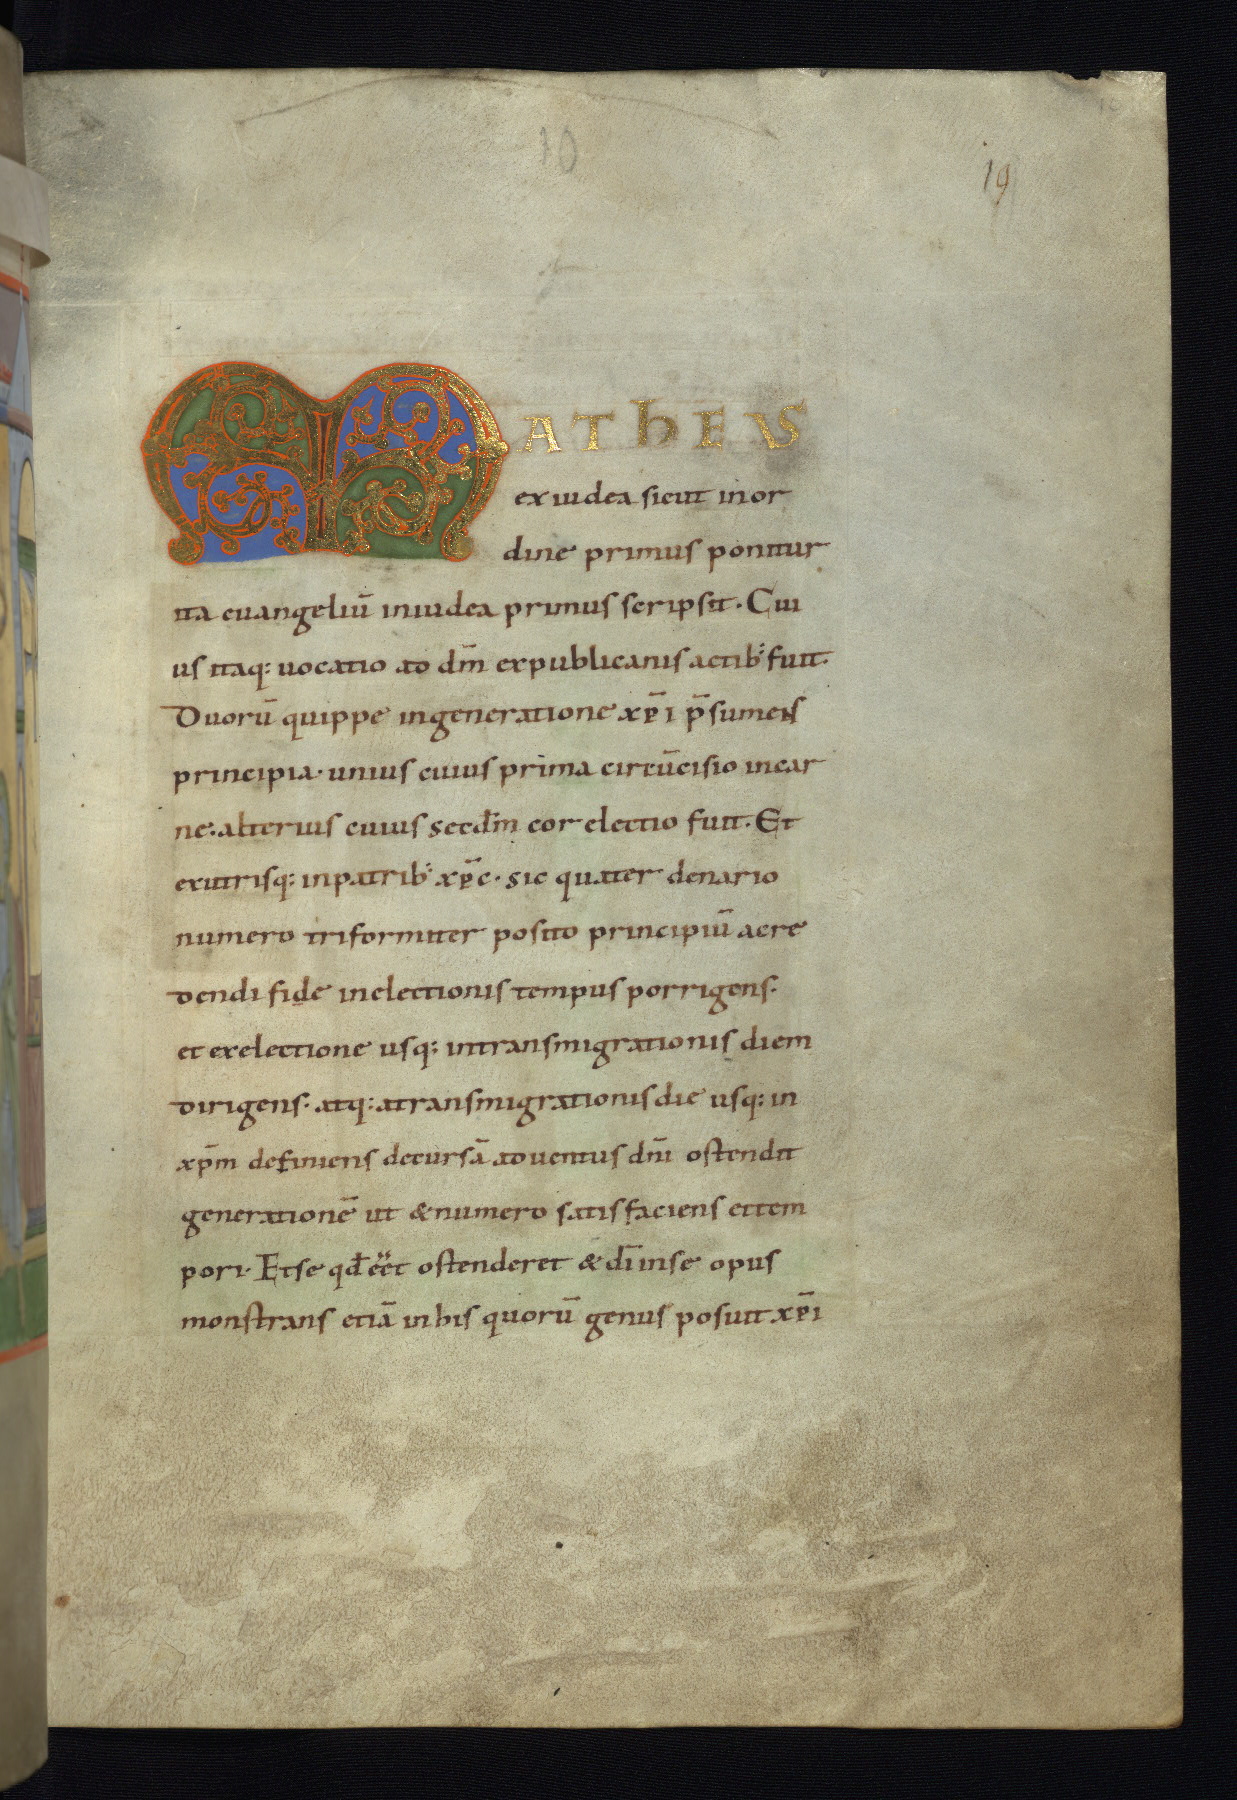 10
19
MATHEUS
ex iudea sicut in or
dine primus ponitur
ita euangeliū in iudea primus scripsit. Cui
us itaq: uocatio ad dm̄ ex publicanis actib: fuit.
Duorū quippe in generatione xp̄i p̄sumens
principia. unius cuius prima circūcisio in car
ne. alterius cuius secdm̄ cor electio fuit. Et
ex utrisq: in patrib: xp̄c. sic quater denario
numero triformiter posito principiū a cre
dendi fide in electionis tempus porrigens.
et ex electione usq: in transmigrationis diem
dirigens. atq: a transmigrationis die usq: in
xp̄m definiens decursā aduentus dn̄i ostendit
generationē ut & numero satisfaciens et tem
pori. Et se qđ eēt ostenderet & dī in se opus
monstrans etiā in his quorū genus posuit xp̄i